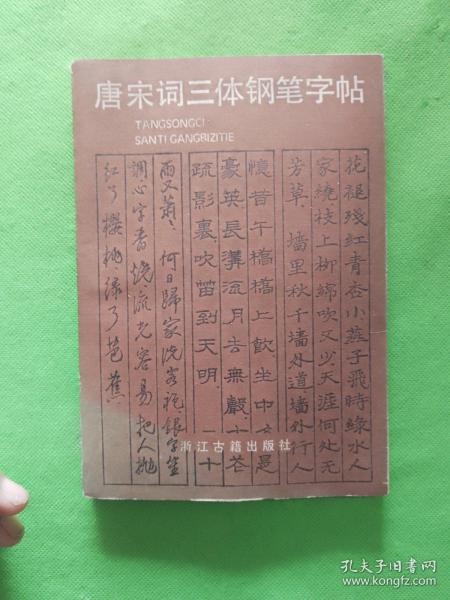 唐宋词三体钢笔字帖
TANGSONGCI
SANTI GANGBIZITIE
花褪残红青杏小燕子飛時綠水人
家繞枝上柳綿吹又少天涯何处无
芳草 墙里秋千墙外道墙外行人
憶昔午橋橋上飲坐中 是
豪英長溝流月去無聲 花
疏影裏吹笛到天明 二十
雨又萧〻 何日歸家洗客袍銀字笙
調心字香燒流光容易把人抛
红了樱桃绿了芭蕉
浙江古籍出版社
孔夫子旧书网
www.kongfz.com